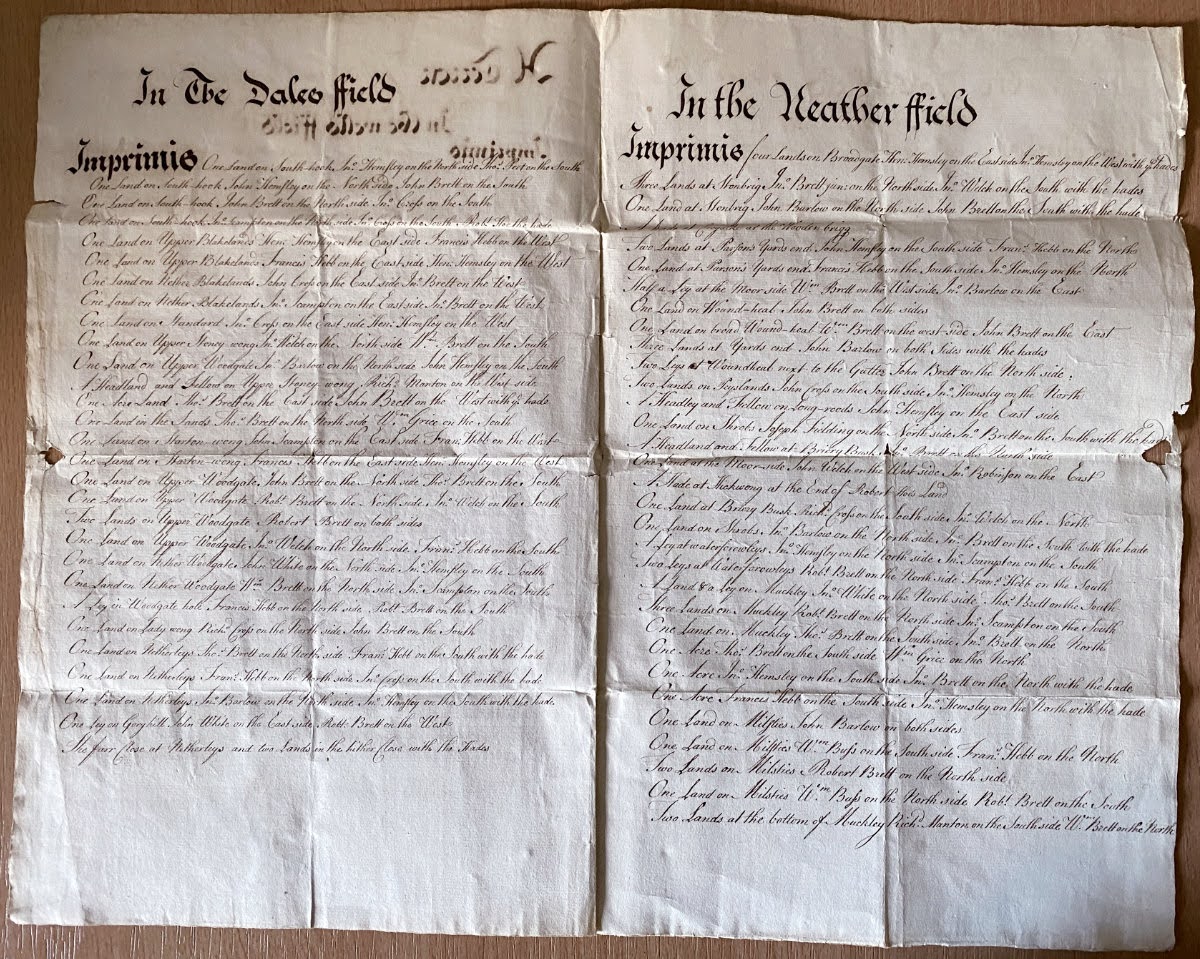 In The Dales ffield
Imprimis One Land on South-hook Jno. Hemsley on the North side Thos. Peet on the South
One Land on South-hook John Hemsley on the North Side John Brett on the South
One Land on South-hook John Brett on the North Side Jno. Cross on the South
One Land on South-hook Jno. Scampton on the North side Jno. Cross on the South Robt. the hade
One Land on Upper Blakelands Hen: Hemsley on the East side Francis Hebb on the West
One Land on Upper Blakelands Francis Hebb on the East side Hen: Hemsley on the West
One Land on Nether Blakelands John Cross on the East side Jno. Brett on the West
One Land on Nether Blakelands Jno. Scampton on the East side Jno. Brett on the West
One Land on Standard Jno. Cross on the East side Hen: Hemsley on the West
One Land on Upper Honey wong Jno. Welch on the North side Wm. Brett on the South
One Land on Upper Woodgate Jno. Barlow on the North side John Hemsley on the South
A Headland and Fellow on Upper Honey wong Richd. Manton on the West side
One Acre Land Thos. Brett on the East side John Brett on the West with ye hade
One Land on the Sands Thos. Brett on the North side Wm. Grice on the South
One Land on Marton-wong John Scampton on the East side Fran: Hebb on the West
One Land on Marton-wong Francis Hebb on the East side Hen: Hemsley on the West
One Land on Upper Woodgate John Brett on the North side Thos. Brett on the South
One Land on Upper Woodgate Robt. Brett on the North side Jno. Welch on the South
Two Lands on Upper Woodgate Robert Brett on both sides
One Land on Upper Woodgate Jno. Welch on the North side Fran: Hebb on the South
One Land on Nether Woodgate John White on the North side Jno. Hemsley on the South
One Land on Nether Woodgate Wm. Brett on the North side Jno. Scampton on the South
A Ley in Woodgate hole Francis Hebb on the North side Robt. Brett on the South
One Land on Lady wong Richd. Cross on the North side John Brett on the South
One Land on Netherleys Thos. Brett on the North side Fran: Hebb on the South with the hade
One Land on Netherleys Fran: Hebb on the North side Jno. Cross on the South with the hade
One Land on Netherleys Jno. Barlow on the North side Jno. Hemsley on the South with the hade
One Ley on John White on the East side Robt. Brett on the West
The farr Close at Netherleys and two Lands in the hither Close with the Hades
In the Neather ffield
Imprimis four Lands on Broadgate Hen: Hemsley on the East side Jno. Hemsley on the West with ye hades
Three Lands at Stonbrig Jno. Brett jun: on the North side Jno. Welch on the South with the hades
One Land at Stonbrig John Barlow on the North side John Brett on the South with the hade
at the Wooden brigg
Two Lands at Parson's Yards end John Hemsley on the South side Fran: Hebb on the North
One Land at Parson's Yards end Francis Hebb on the South side Jno. Hemsley on the North
Half a Ley at the Moor side Wm. Brett on the West side Jno. Barlow on the East
One Land on Wound-heal John Brett on both sides
One Land on broad Wound-heal Wm. Brett on the west side John Brett on the East
Three Lands at Yards end John Barlow on both Sides with the hades
Two Leys at Woundheal next to the Gutter John Brett on the North side;
Two Lands on Peyslands John Cross on the South side Jno. Hemsley on the North
A Headley and Fellow on Long-roods John Hemsley on the East side
One Land on Shrobs Joseph Fielding on the North side Jno. Brett on the South with the hade
A Headland and Fellow at Briery Busk Jno. Brett on the North side
One Land at the Moor side John Welch on the West side Jno. Robinson on the East
A Hade at Kickwong at the End of Robert Land
One Land at Briery Busk Richd. Cross on the South side Jno. Welch on the North
One Land on Shrobs Jno. Barlow on the North side Jno. Brett on the South with the hade
A Ley at waterforowleys Jno. Hemsley on the North side Jno. Scampton on the South
Two Leys at Waterforowleys Robt. Brett on the North side Fran: Hebb on the South
A Land & a Ley on Muckley Jno. White on the North side Thos. Brett on the South
Three Lands on Muckley Robt. Brett on the North side Jno. Scampton on the South
One Land on Muckley Thos. Brett on the South side Jno. Brett on the North
One Acre Thos. Brett on the South side Wm. Grice on the North
One Acre Jno. Hemsley on the South side Jno. Brett on the North with the hade
One Acre Francis Hebb on the South side Jno. Hemsley on the North with the hade
One Land on Milsties John Barlow on both sides
One Land on Milsties Wm. Buss on the South side Fran: Hebb on the North
Two Lands on Milsties Robert Brett on the North side
One Land on Milsties Wm. Buss on the North side Robt. Brett on the South
Two Lands at the bottom of Muckley Richd. Manton on the South side Wm. Brett on the North